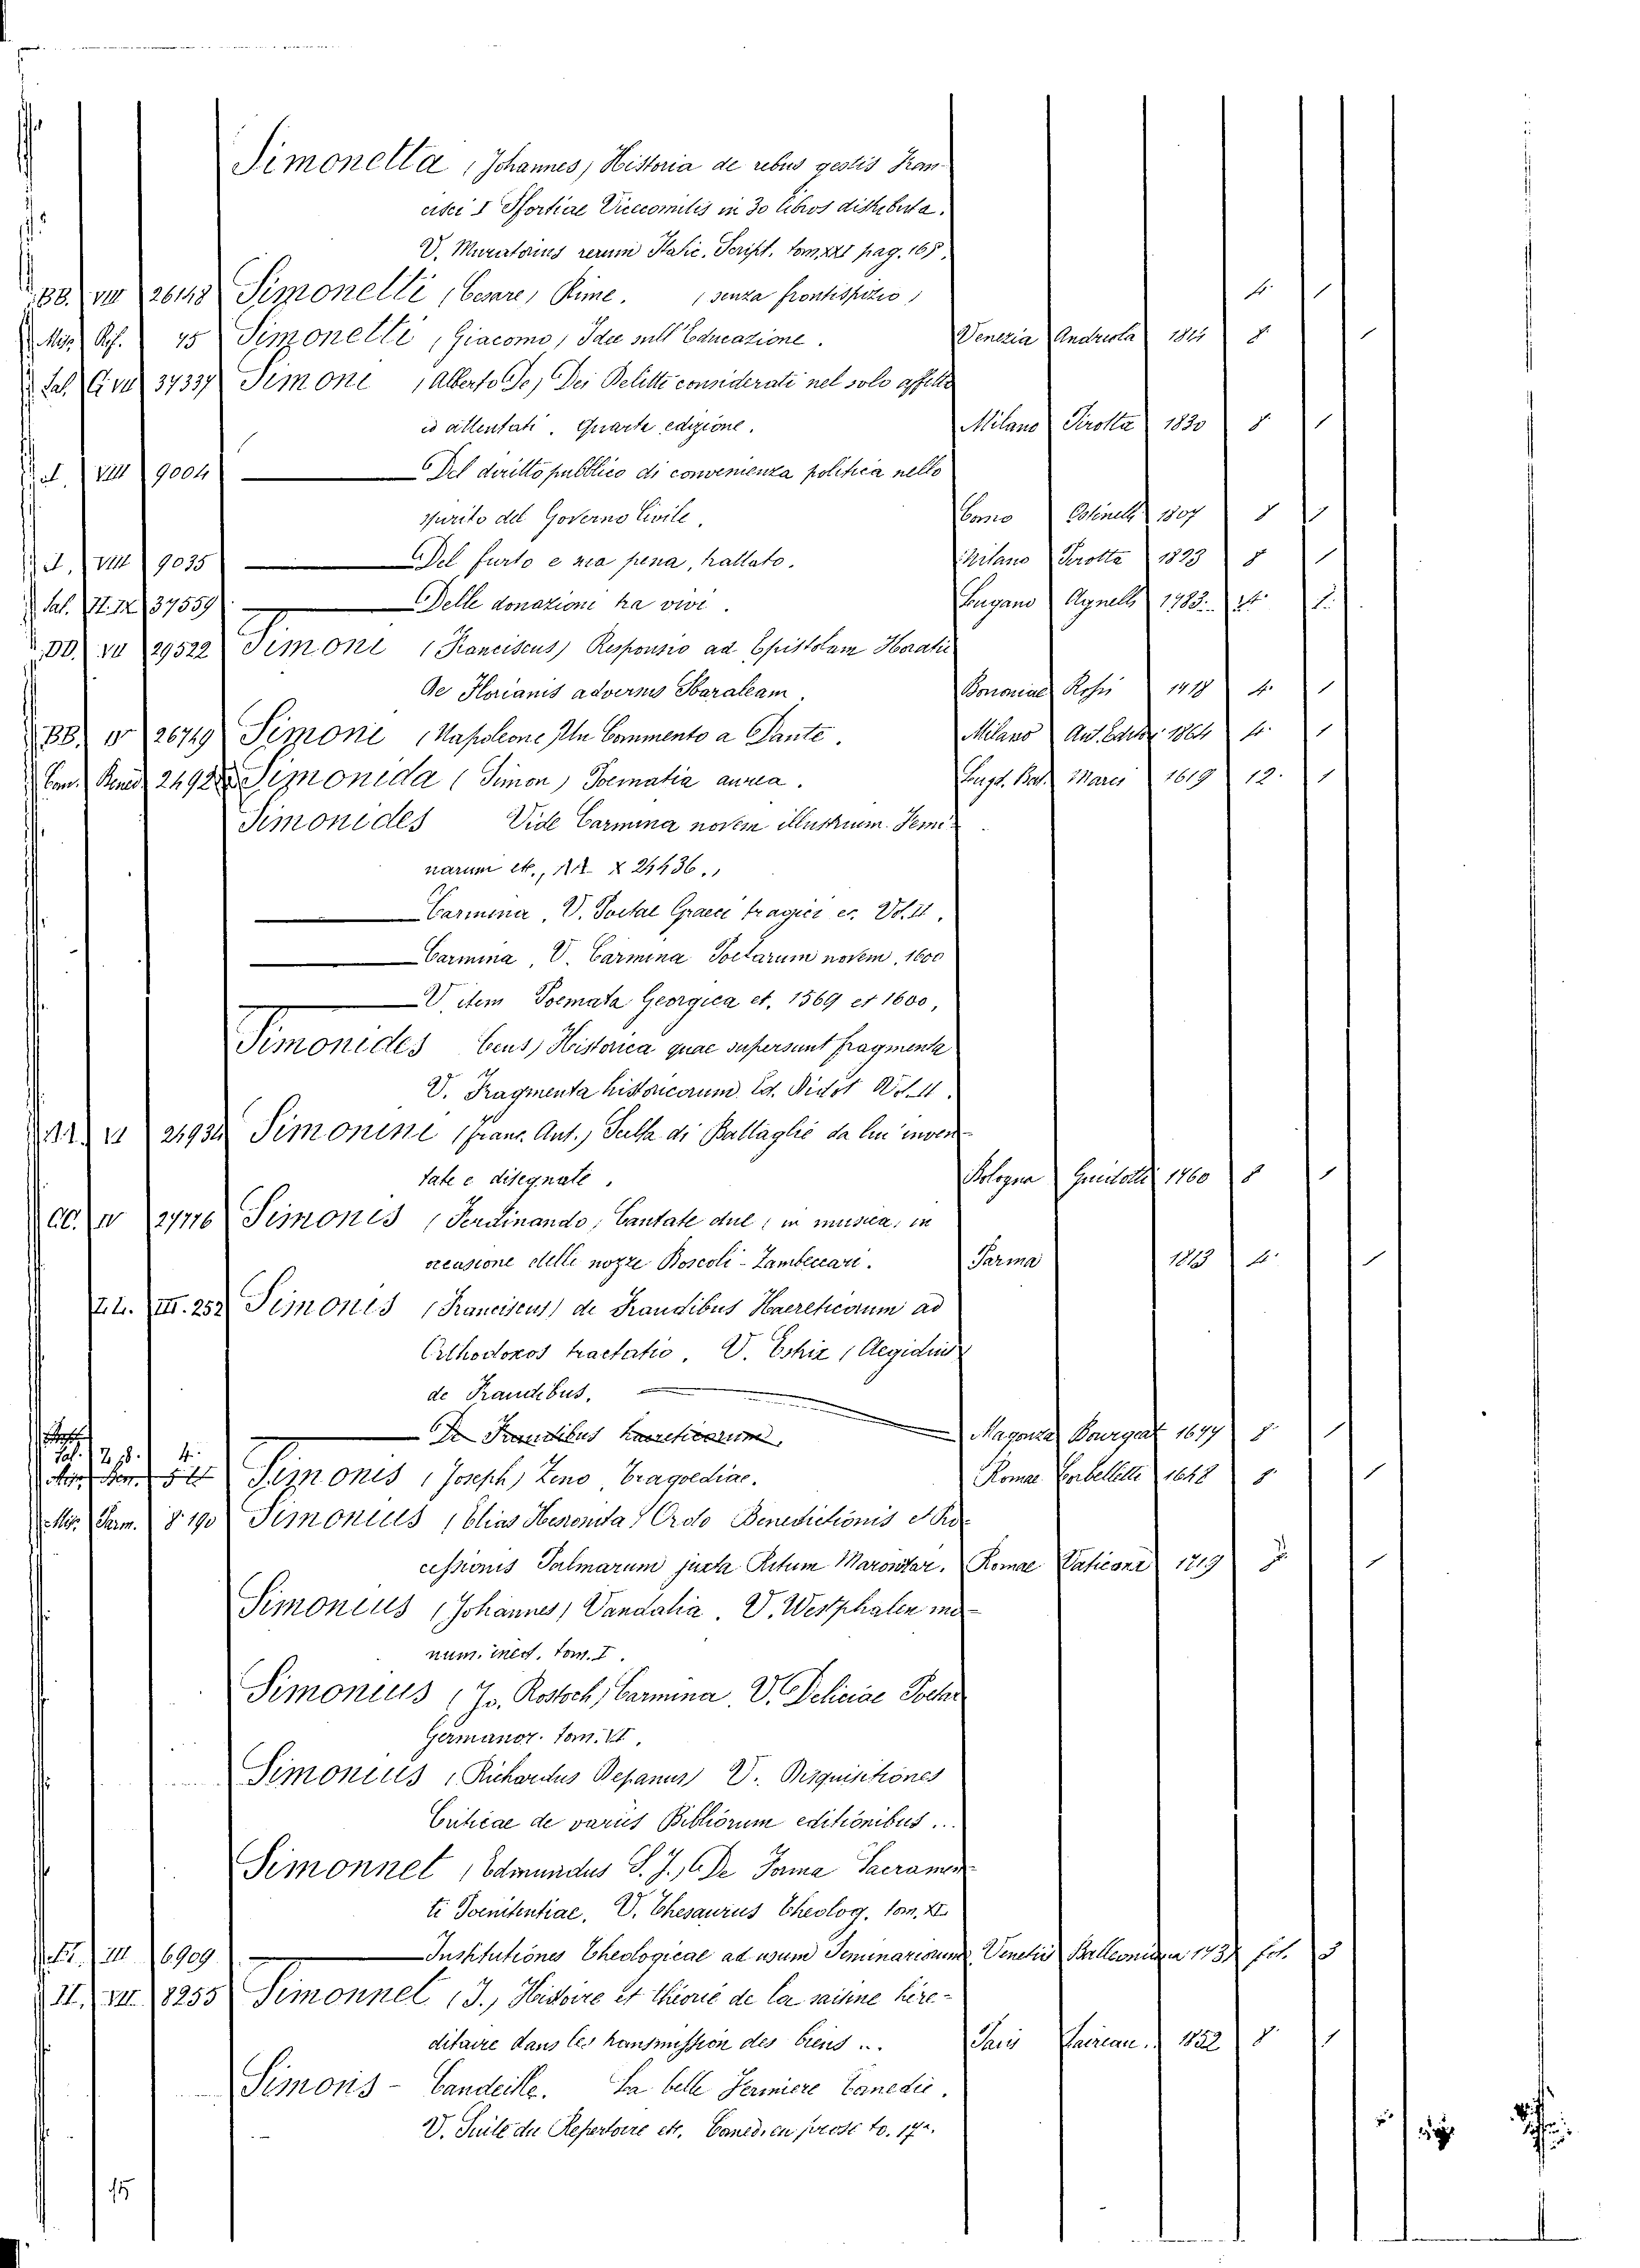 Simonetta (Johannes) Historia de rebus gestis Fran-
cisci I Sfortiae Vicecomitis in 30 libros distributa.
V. Muratorius rerum Italic. Script. tom. XXI pag. 165.
BB. VIII 26148 Simonetti (Cesare) Rime. (senza frontispizio) 4. 1
Misc. Rof. 45 Simonetti (Giacomo) Idee sull'Educazione. Venezia Andreola 8 1
Sal. C. VII 37337 Simoni (Alberto De) Dei Delitti considerati nel solo affetto
ed attentati. Quarta edizione. Milano Pirotta 1830 8 1
I. VIII 9004 Del diritto pubblico di convenienza politica nello
spirito del Governo Civile. Como Ostinelli 1807 8 1
I. VIII 9035 Del furto e sua pena, trattato. Milano Pirotta 1823 8 1
Sal. II. IX 37559 Delle donazioni tra vivi. Lugano Agnelli 1783. 4. 1.
DD. VII 29522 Simoni (Franciscus) Responsio ad Epistolam Horatii
de Florianis adversus Sbaraleam. Bononiae 4. 1
BB. V 26749 Simoni (Napoleone) Un Commento a Dante. Milano 1864 4. 1
24928 Simonida (Simon) Poematia aurea. Lugd. Bat. Marci 1619 12. 1
Simonides Vide Carmina novem illustrium Femi-
narum etc., X 24436.
Carmina, V. Poetae Graeci tragici ec. Vol. II.
Carmina, V. Carmina Poetarum novem, 1600
V. item Poemata Georgica et. 1569 et 1600,
Simonides Ceus) Historica quae supersunt fragmenta
V. Fragmenta historicorum Ed. Didot Vol. II.
VI 24934 Simonini (Franc. Ant.) Sulla di Battaglie da lui inven-
tate e disegnate. Bologna 1760 8 1
CC. IV 27776 Simonis (Ferdinando) Cantate due (in musica) in
occasione delle nozze Boscoli-Zambeccari. Parma 1813 4. 1
LL. III. 252 Simonis (Franciscus) de Fraudibus Haereticorum ad
Orthodoxos tractatio. V. Estrix (Aegidius
de Fraudibus.
De Fraudibus haereticorum. Magonza Bourgeat 1677 8. 1
Simonis (Joseph) Zeno, Tragoediae. Romae Corbelletti 1648 8. 1
Misc. Parm. 8. 190 Simonius (Elias Hesronita) Ordo Benedictionis et Pro-
cessionis Palmarum juxta Ritum Maronitar. Romae Vaticana 1719 1
Simonius (Johannes) Vandalia. V. Westphalen mo-
num. ined. tom. I.
Simonius (Jo. Rostoch) Carmina. V. Deliciae Poetar
Germanor. tom. VI.
Simonius (Richardus Depanus) V. Disquisitiones
Criticae de variis Bibliorum editionibus...
Simonnet (Edmundus S. J.) De Forma Sacramen-
ti Poenitentiae. V. Thesaurus Theolog. tom. XI.
III 6909 Institutiones Theologicae ad usum Seminariorum Venetiis Balleoniana 1731 fol. 3
II. VII 8255 Simonnet (J.) Histoire et théorie de la saisine héré-
ditaire dans les transmission des biens... Paris 1852 8. 1
Simons-Candeille. La belle Fermiere Comedie.
V. Suite du Repertoire etc. Comed. en prose to. 17.
15